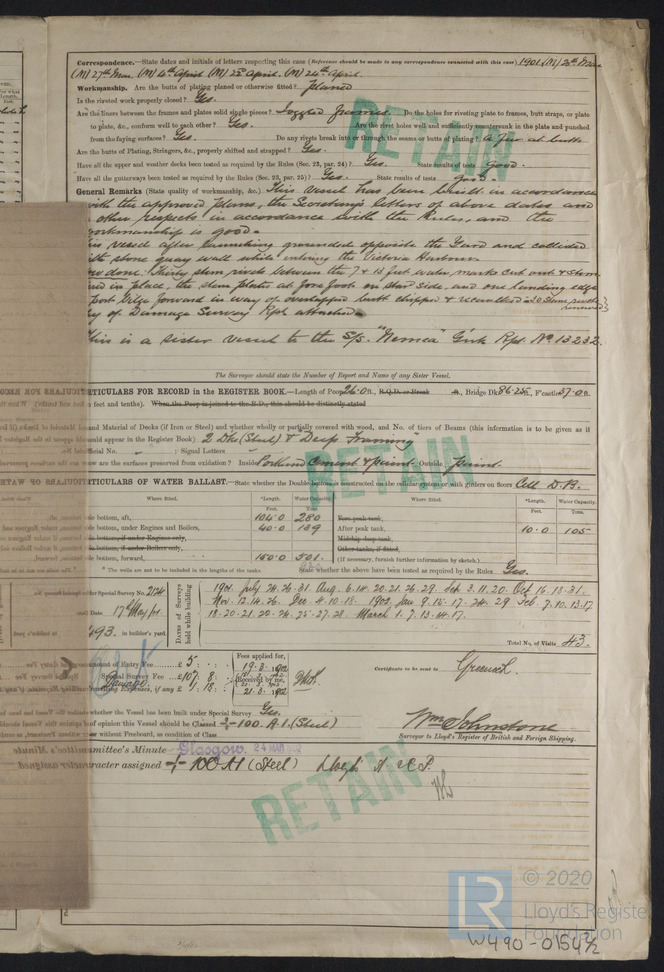 Correspondence.—State dates and initials of letters respecting this case (Reference should be made to any correspondence connected with this case) 1901 (M) 20th Mar.
(M) 27th Mar. (M) 4th April (M) 23rd April. (M) 24th April.
Workmanship. Are the butts of plating planed or otherwise fitted? Planed
Is the riveted work properly closed? Yes.
Are the liners between the frames and plates solid single pieces? Joggled frames. Do the holes for riveting plate to frames, butt straps, or plate
to plate, &c., conform well to each other? Yes. Are the rivet holes well and sufficiently countersunk in the plate and punched
from the faying surfaces? Yes. Do any rivets break into or through the seams or butts of plating? a few at butts
Are the butts of Plating, Stringers, &c., properly shifted and strapped? Yes.
Have all the upper and weather decks been tested as required by the Rules (Sec. 23, par. 24)? Yes. State results of tests Good.
Have all the gutterways been tested as required by the Rules (Sec. 23, par. 25)? Yes. State results of tests Good.
General Remarks (State quality of workmanship, &c.) This vessel has been built in accordance
with the approved plans, the Secretary's letters of above dates and
other respects in accordance with the Rules, and the
workmanship is good.
vessel after launching grounded opposite the Yard and collided
with stone quay wall while entering the Victoria Harbour
now done: Thirty stem rivets between the 7 & 13 feet water marks cut out & stem
in place, the stem plates at fore foot on star side, and one landing edge
port bilge forward in way of overlapped butt chipped & recaulked
of Damage Survey Rpt attached
This is a sister vessel to the S/S. "Nemea" Gnk Rpt. No. 13232.
The Surveyor should state the Number of Report and Name of any Sister Vessel.
PARTICULARS FOR RECORD in the REGISTER BOOK.—Length of Poop 26.0 ft., R.Q.D. or Break ft., Bridge Dk 86.25 ft., F'castle 37.0 ft.
(in feet and tenths). When the Poop is joined to the B.D., this should be distinctly stated
and Material of Decks (if Iron or Steel) and whether wholly or partially covered with wood, and No. of tiers of Beams (this information is to be given as if
should appear in the Register Book) 2 Dks (Steel) & Deep Framing
Official No. ; Signal Letters
How are the surfaces preserved from oxidation? Inside Portland Cement & paint Outside paint.
PARTICULARS OF WATER BALLAST.—State whether the Double bottom is constructed on the cellular system or with girders on floors Cell D.B.
Where fitted. *Length. Water Capacity. Where fitted. *Length. Water Capacity.
Feet. Tons. Feet. Tons.
bottom, aft, 104.0 280 Fore peak tank,
bottom, under Engines and Boilers, 40.0 139 After peak tank, 10.0 105
bottom, if under Engines only, Midship deep tank,
bottom, if under Boilers only, Other tanks, if fitted,
bottom, forward, 150.0 501 (If necessary, furnish further information by sketch.)
* The wells are not to be included in the lengths of the tanks. State whether the above have been tested as required by the Rules Yes.
for Special Survey No. 2174
Date 17th May/01
493 in builder's yard.
DATES of Surveys held while building
1901. July 24.26.31 Aug. 6.14.20.21.26.29. Sep 3.11.20. Oct 16.18.31.
Nov. 12.14.26. Dec 4.10.18. 1902. Jan 9.15.17.24.29 Feb 7.10.13.17
18.20.21.20.24.25.27.28. March 1.7.13.14.17.
Total No. of Visits 43.
Amount of Entry Fee .. £ 5 : : Fees applied for,
Special Survey Fee .. £ 107 : 8 : 19.3.1902
Damage Received by me,
Expenses, if any £ 1 : 18 : 21.3.1902
Certificate to be sent to Greenock.
whether the Vessel has been built under Special Survey Yes.
of opinion this Vessel should be Classed +100.A.1.(Steel)
without Freeboard, as condition of Class
Wm Johnstone
Surveyor to Lloyd's Register of British and Foreign Shipping.
Committee's Minute Glasgow. 24 MAR 1902
Character assigned + 100 A1 (Steel) Lloyd's A & C.P.
RETAIN
RETAIN
RETAIN
LR
© 2020
Lloyd's Register
Foundation
W490-0154½